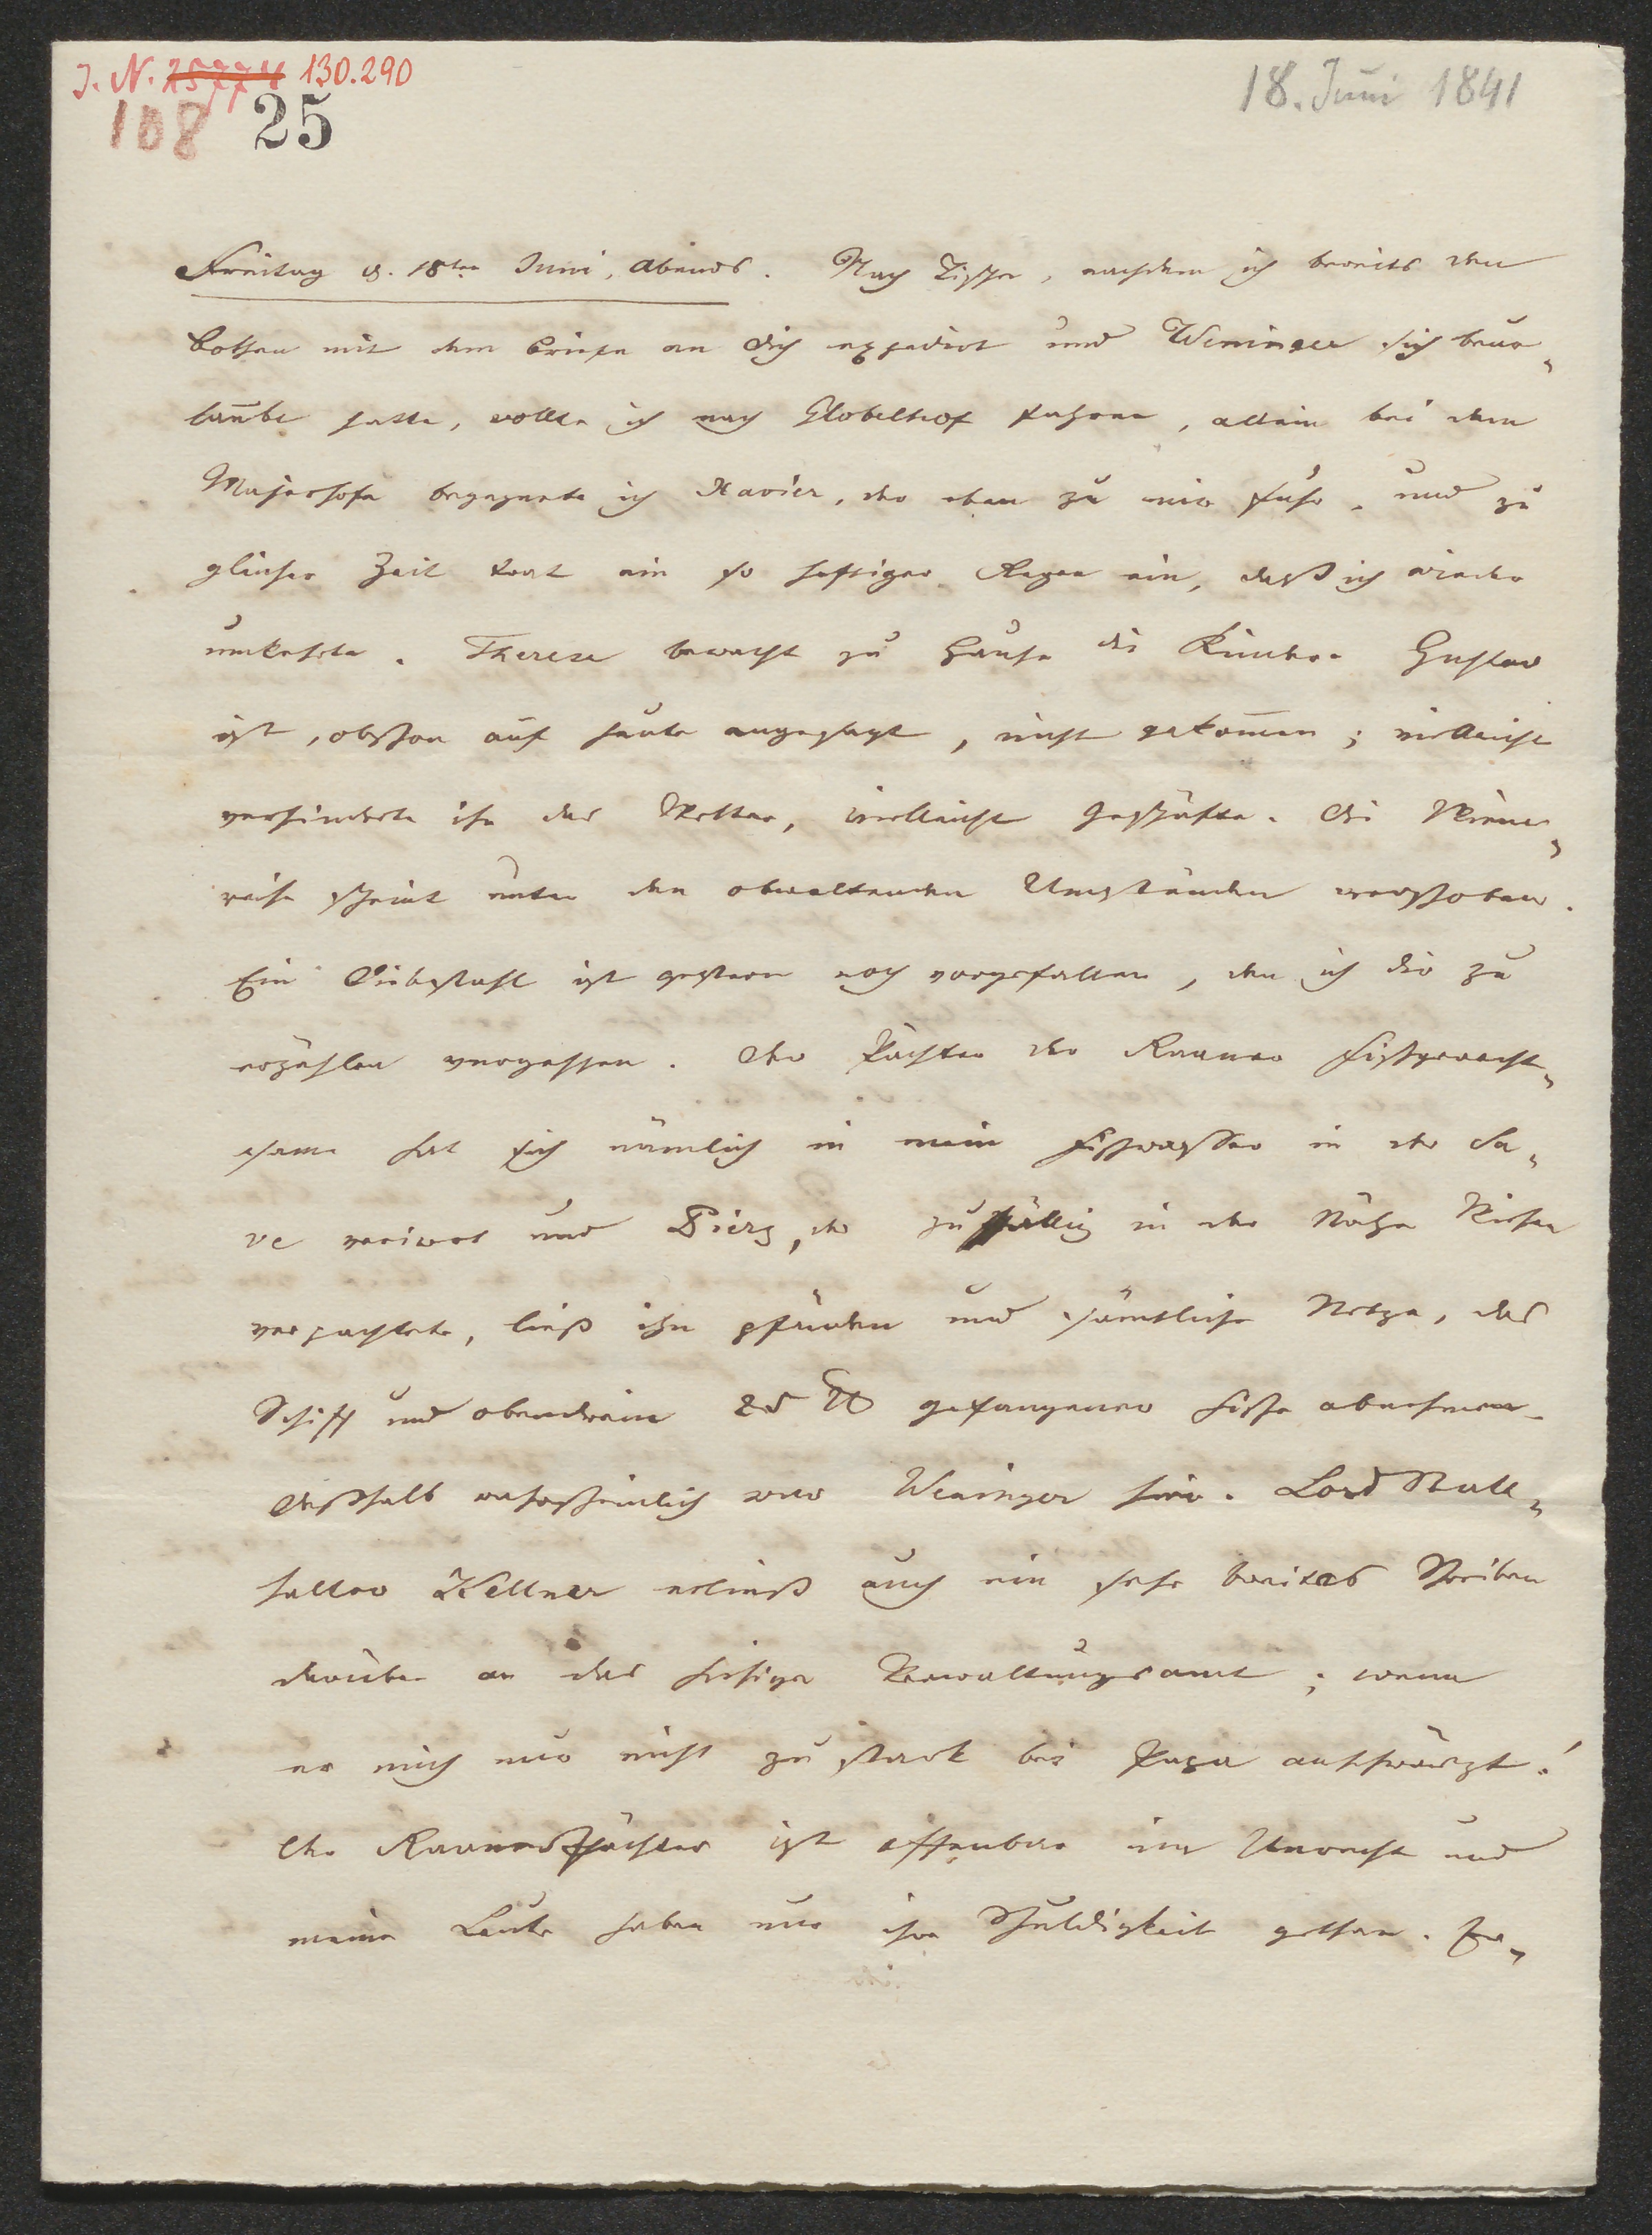 J. N. 25774 130.290
108 25
18. Juni 1841
Freitag d. 18ten Juni, Abends. Nach Tische, nachdem ich bereits den
Bothen mit dem Briefe an dich expedirt und Weninger sich beur-
laubt hatte, wollte ich nach Globelhof fahren, allein bei dem
Majerhofe begegnete ich Xavier, der eben zu mir fuhr, und zu
gleicher Zeit trat ein so heftiger Regen ein, daß ich wieder
umkehrte. Therese bewacht zu Hause die Kinder. Gustav
ist, obschon auf heute angesagt, nicht gekom̅en; vielleicht
verhinderte ihn das Wetter, vielleicht Geschäfte. Die Wiener-
reise scheint unter den obwaltenden Umständen verschoben.
Ein Diebstahl ist gestern noch vorgefallen, den ich dir zu
erzählen vergessen. Der Pächter der Rauner Fischgerecht-
same hat sich nämlich in mein Fischwasser in der Sa-
ve verirrt und Pierz, der zufällig in der Nähe Wiesen
verpachtete, ließ ihn pfänden und sämtliche Netze, das
Schiff und obendrein 25 ℔ gefangener Fische abnehmen.
Deßhalb wahrscheinlich war Weninger hier. Lord Statt-
halter Kellner erließ auch ein sehr breites Schreiben
darüber an das hiesige Verwaltungsamt; wenn
er mich nur nicht zu stark bei Papa anschwärzt!
Der Rauner Pächter ist offenbar im Unrecht und
meine Leute haben nur ihre Schuldigkeit gethan. Er-